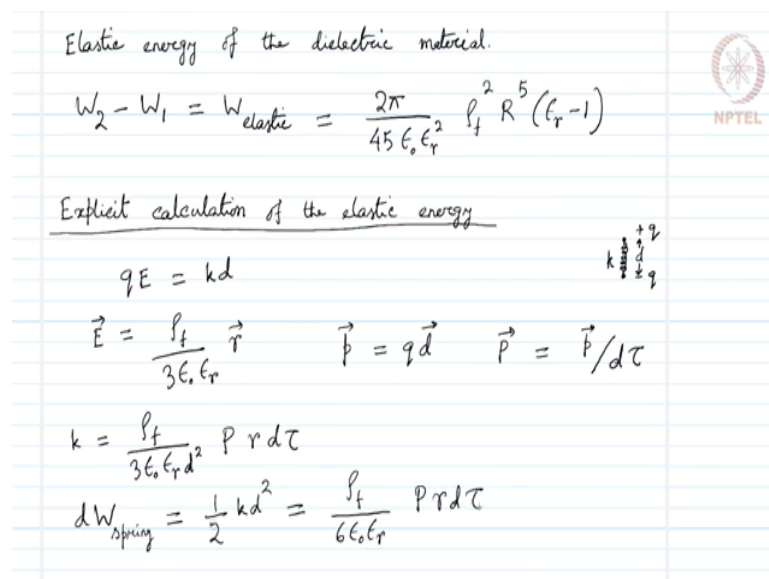 Elastic energy of the dielectric material.
W₂ - W₁ = W_elastic = 2π / 45 ϵ₀ ϵᵣ² ρ_f² R⁵ (ϵᵣ - 1)
NPTEL
Explicit calculation of the elastic energy
+q
k d
-q
qE = kd
E⃗ = ρ_f / 3ϵ₀ϵᵣ r⃗ p⃗ = qd⃗ P⃗ = p⃗/dτ
k = ρ_f / 3ϵ₀ϵᵣd² P r dτ
dW_spring = 1/2 kd² = ρ_f / 6ϵ₀ϵᵣ P r dτ